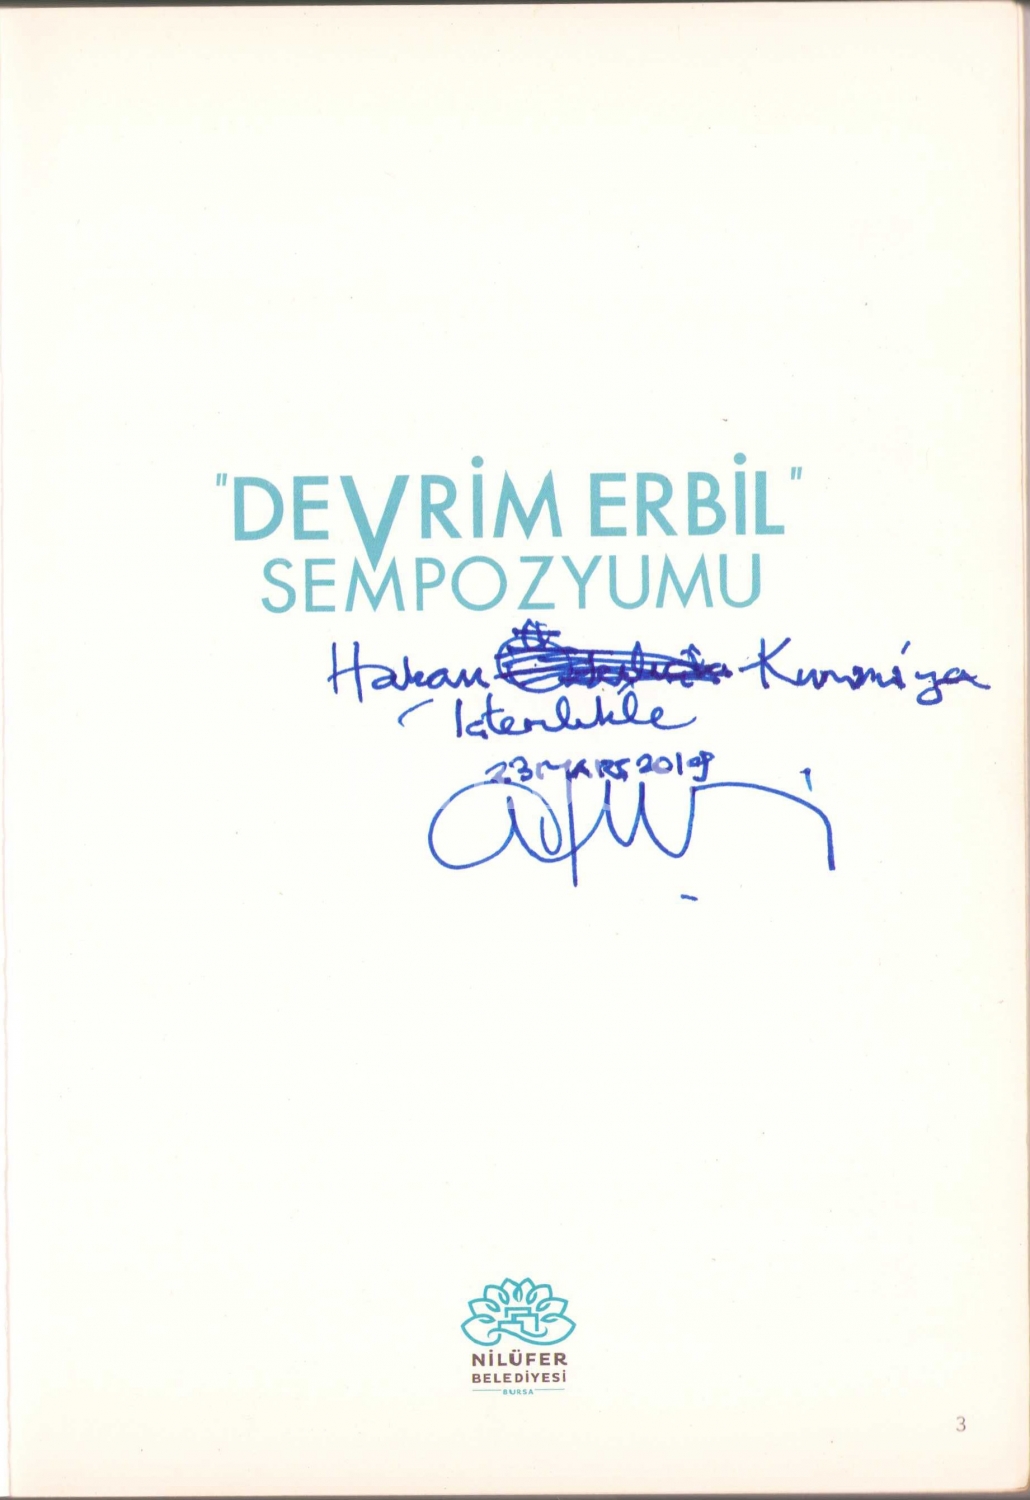 "DEVRİM ERBİL"
SEMPOZYUMU
Hakan
İçtenlikle
23 MART 2019
NİLÜFER
BELEDİYESİ
BURSA
3